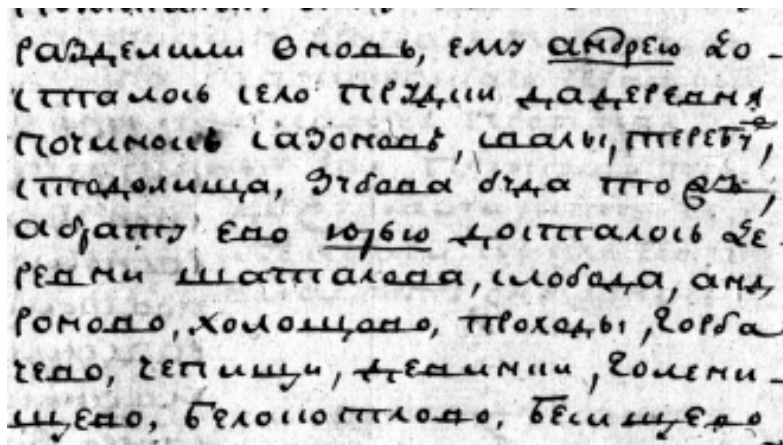 разделили вновь, ему андрею до-
сталось село прудки да деревня
починокъ сазоновъ, шалы, теребу,
стодолища, зубова буда то ж,
а брату ево юрью досталось де
ревни шаталова, слобода, анд
роново, холощово, проходы, горба
чево, чепищи, девинки, голени-
щево, белокотлово, бесищево